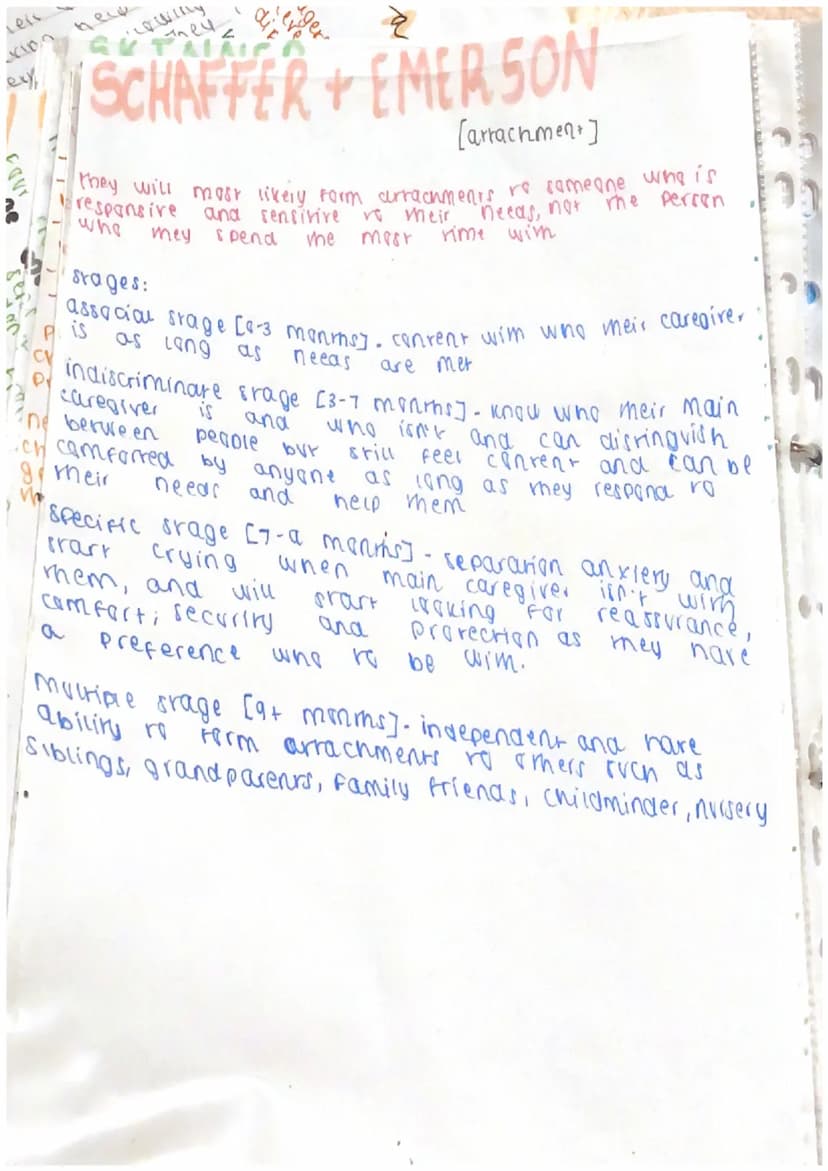 SCHAFFER + EMERSON
[attachment]
they will most likely form attachments to someone who is
responsive and sensitive to their needs, not the person
who they spend the most time with
stages:
associal stage [0-3 months]. content with who their caregiver
is as long as needs are met
indiscriminate stage [3-7 months]- know who their main
caregiver is and who isn't and can distinguish
between people but still feel content and can be
comforted by anyone as long as they respond to
their needs and help them
specific stage [7-9 months] - separation anxiety and
start crying when main caregiver isn't with
them, and will start looking for reassurance,
comfort, security and protection as they have
a preference who to be with.
multiple stage [9+ months]- independent and have
ability to form attachments to others such as
siblings, grandparents, family friends, childminder, nursery